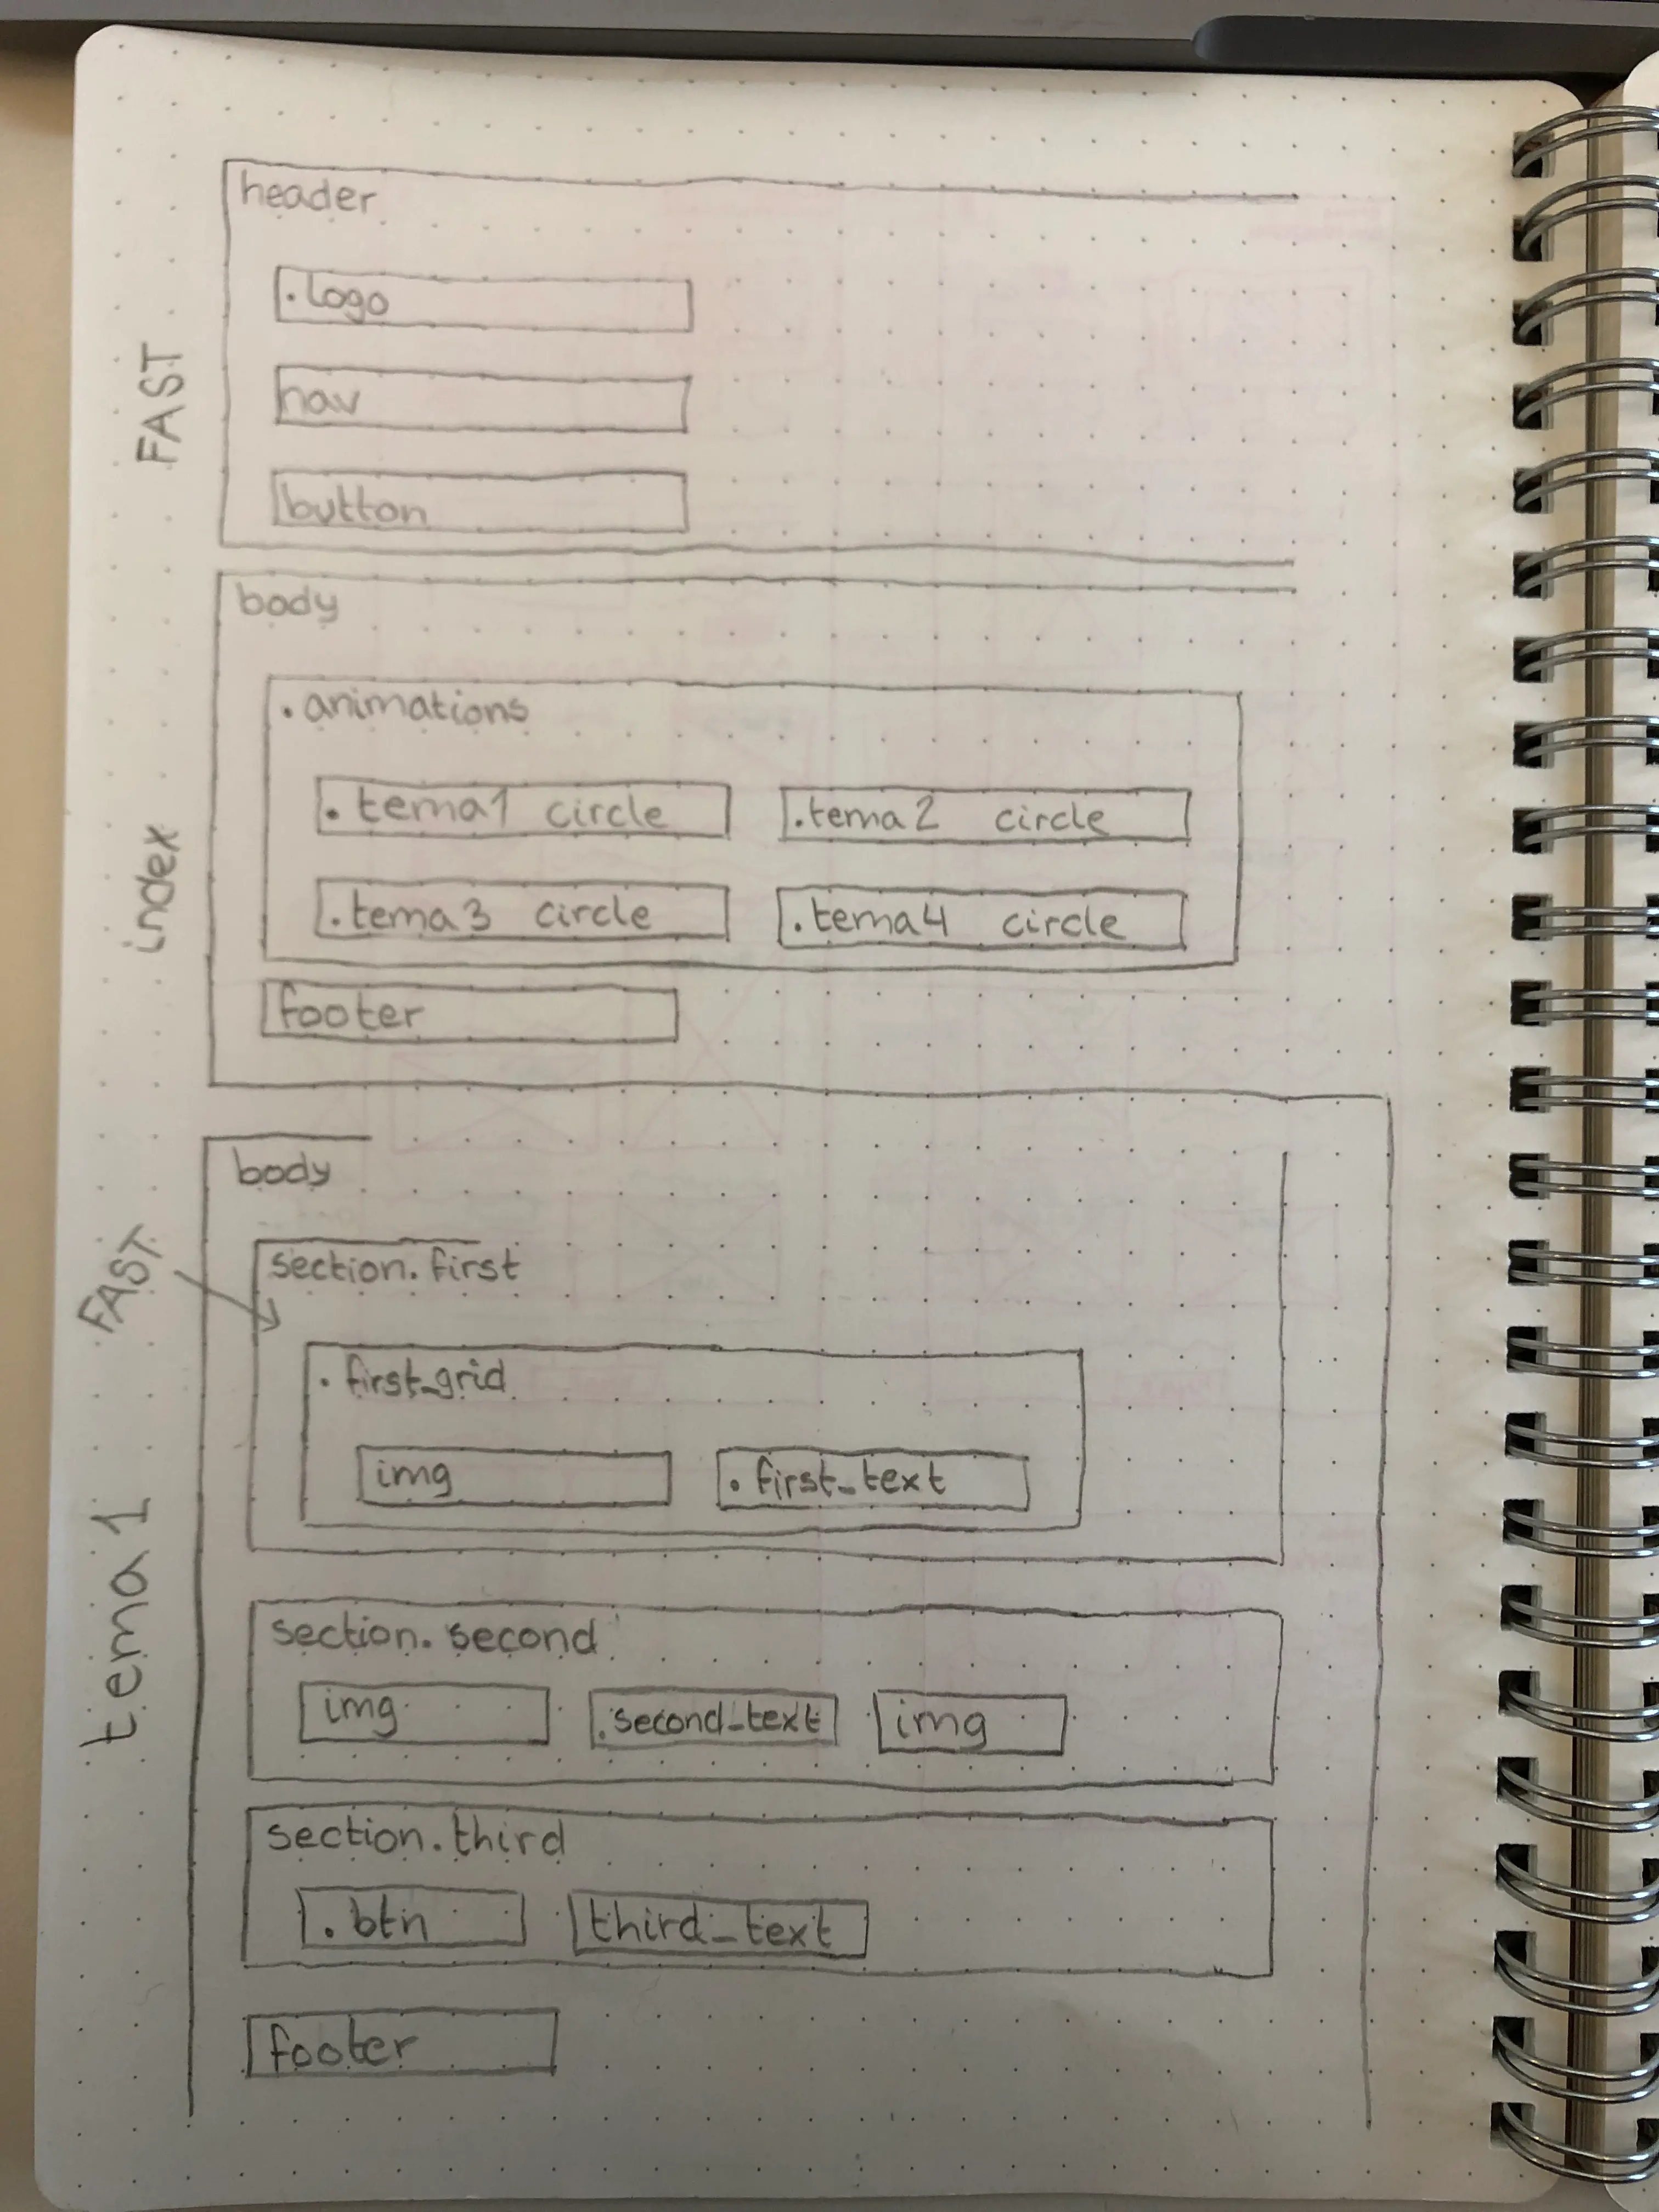 FAST
header
.logo
nav
button
index
body
.animations
.tema1 circle
.tema2 circle
.tema3 circle
.tema4 circle
footer
tema 1
body
FAST
section.first
.first_grid
img
.first_text
section.second
img
.second_text
img
section.third
.btn
third_text
footer